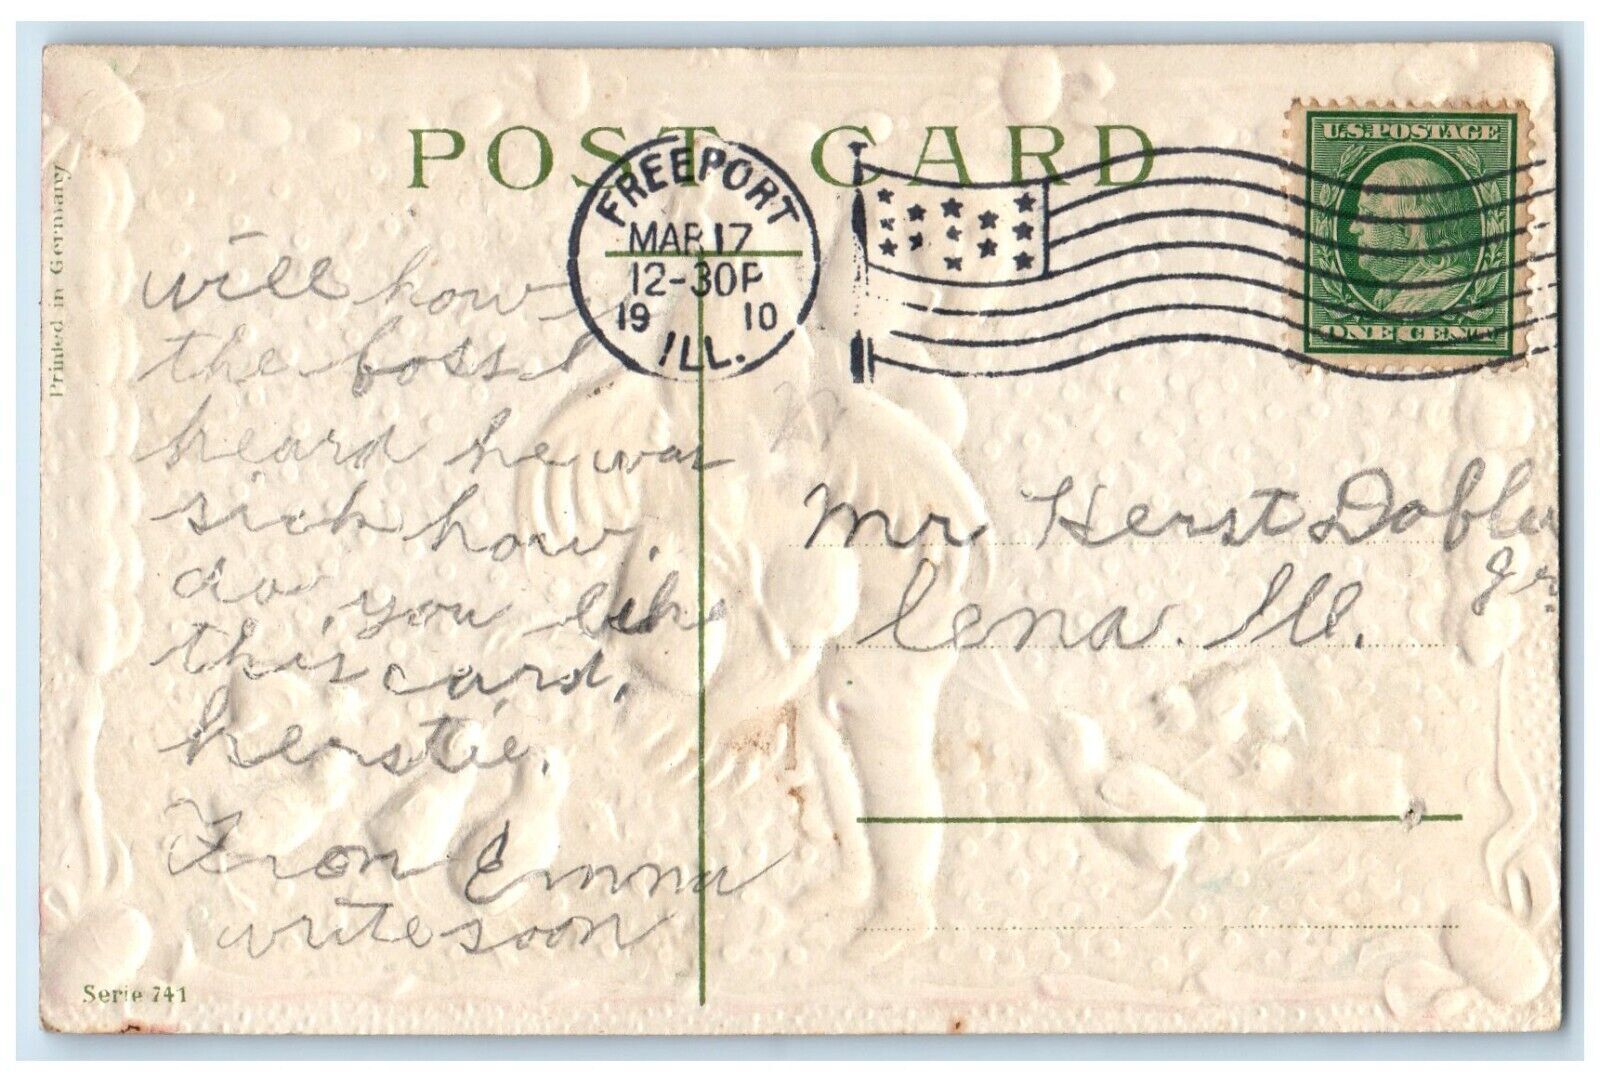 POST CARD
Printed in Germany
FREEPORT
MAR 17
12-30P
19 10
ILL.
U.S. POSTAGE
ONE CENT
will how is
the boss I
heard he was
sick how.
do you like
this card.
herstie.
From Emma
write soon
Mr Herst Dobler
Jr.
Lena. Ill.
Serie 741